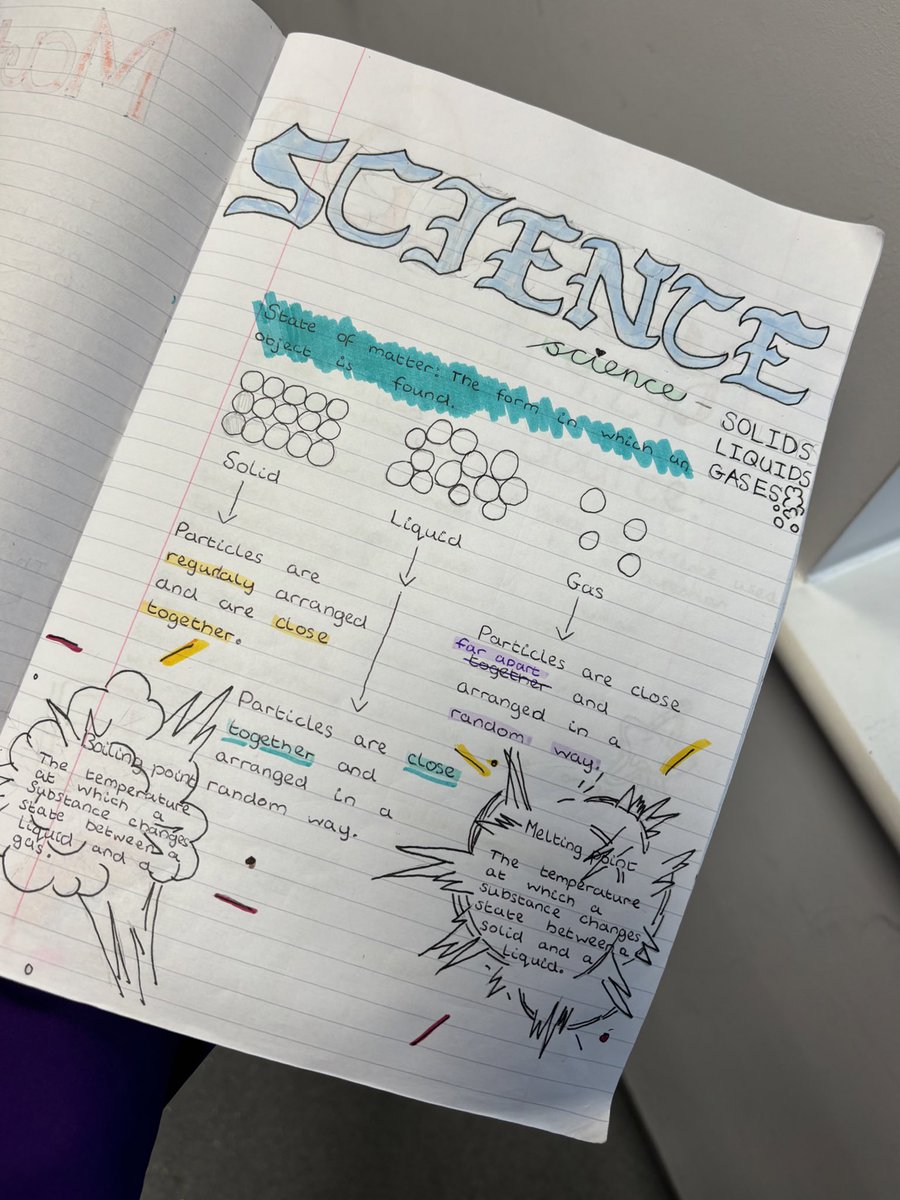 SCIENCE
science -
SOLIDS
LIQUIDS
GASES
State of matter: The form in which an
object is found.
Solid
Particles are
regularly arranged
and are close
together.
Liquid
Particles are close
together and
arranged in a
random way.
Gas
Particles are close
far apart
together and
arranged in a
random way.
Boiling point
The temperature
at which a
substance changes
state between a
liquid and a
gas.
Melting point
The temperature
at which a
substance changes
state between a
solid and a
liquid.